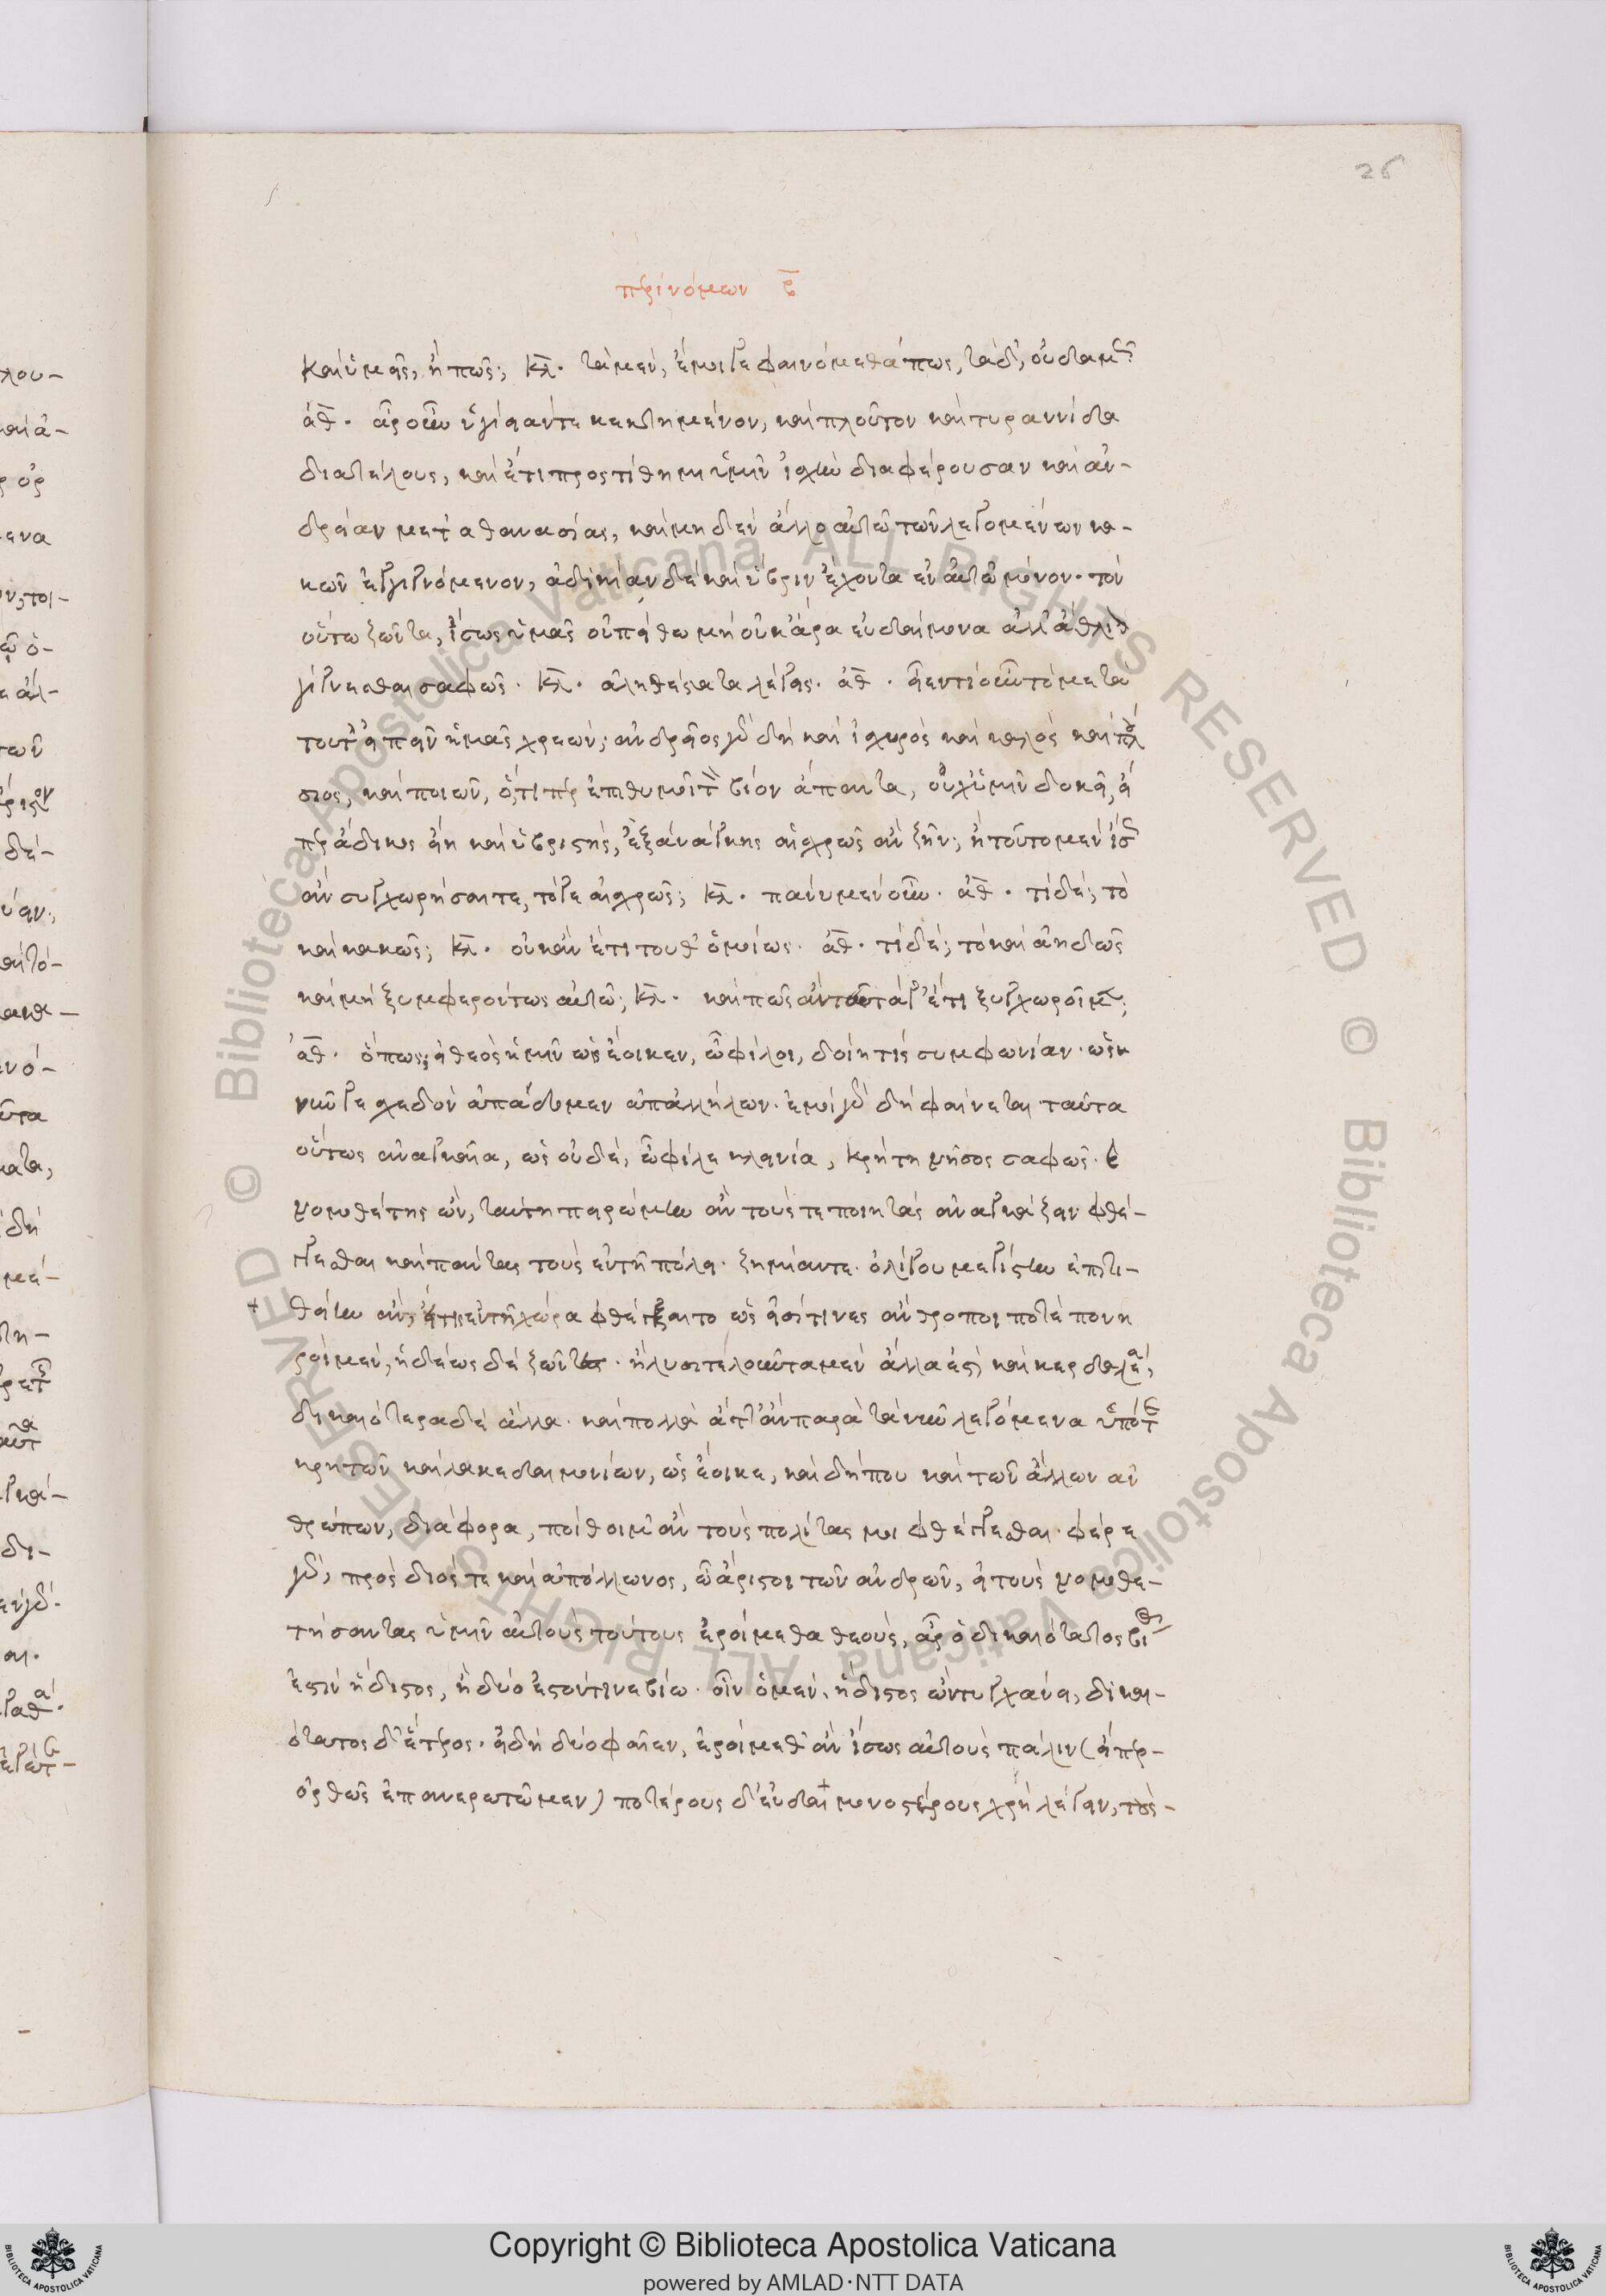 26
περὶ νόμων β̅
καὶ ὑμεῖς, ἢ πῶς; κλ. τὰ μὲν, ἔμοιγε φαινόμεθά πως, τὰ δ', οὐδαμῶς
ἀθ. ἆρ' οὖν ὑγίειάν τε κεκτημένον, καὶ πλοῦτον καὶ τυραννίδα
διατέλους, καὶ ἔτι προστίθημι ὑμῖν ἰσχὺν διαφέρουσαν καὶ ἀν-
δρείαν μετ' ἀθανασίας, καὶ μηδὲν ἄλλο αὐτῷ τῶν λεγομένων κα-
κῶν ἐγγιγνόμενον, ἀδικίαν δὲ καὶ ὕβριν ἔχοντα ἐν αὑτῷ μόνον. τὸν
οὕτω ζῶντα, ἴσως ὑμᾶς οὐ πείθω μὴ οὐκ ἄρα εὐδαίμονα ἀλλ' ἄθλιον
γίγνεσθαι σαφῶς. κλ. ἀληθέστατα λέγεις. ἀθ. εἶεν τί οὖν τὸ μετὰ
τοῦτ' εἰπεῖν ἡμᾶς χρεών; ἀνδρεῖος γὰρ δὴ καὶ ἰσχυρὸς καὶ καλὸς καὶ πλού
σιος, καὶ ποιῶν, ὅ,τι περ ἐπιθυμοῖ τὸν βίον ἅπαντα, οὐχ ὑμῖν δοκεῖ, εἴ
περ ἄδικος εἴη καὶ ὑβριστής, ἐξ ἀνάγκης αἰσχρῶς ἂν ζῆν; ἢ τοῦτο μὲν ἴσως
ἂν συγχωρήσαιτε, τό γε αἰσχρῶς; κλ. πάνυ μὲν οὖν. ἀθ. τί δέ; τὸ
καὶ κακῶς; κλ. οὐκ ἂν ἔτι τοῦθ' ὁμοίως. ἀθ. τί δέ; τὸ καὶ ἀηδῶς
καὶ μὴ ξυμφερόντως αὑτῷ; κλ. καὶ πῶς ἂν ταῦτά γ' ἔτι ξυγχωροῖμεν;
ἀθ. ὅπως; εἰ θεὸς ἡμῖν ὡς ἔοικεν, ὦ φίλοι, δοίη τις συμφωνίαν. ὡς
νῦν γε σχεδὸν ἀπᾴδομεν ἀπ' ἀλλήλων. ἐμοὶ γὰρ δὴ φαίνεται ταῦτα
οὕτως ἀναγκαῖα, ὡς οὐδὲ, ὦ φίλε κλεινία, κρήτη νῆσος σαφῶς. καὶ
νομοθέτης ὢν, ταύτῃ πειρῴμην ἂν τούς τε ποιητὰς ἀναγκάζειν φθέ-
γγεσθαι καὶ πάντας τοὺς ἐν τῇ πόλει. ζημίαν τε ὀλίγου μεγίστην ἐπιτι-
θείην ἂν, εἴ τις ἐν τῇ χώρᾳ φθέγξαιτο ὡς εἰσί τινες ἄνθρωποι ποτὲ πονη
ροὶ μὲν, ἡδέως δὲ ζῶντες. ἢ λυσιτελοῦντα μὲν ἄλλα ἐστὶ καὶ κερδαλέα,
δικαιότερα δὲ ἄλλα. καὶ πολλὰ ἄττ' ἂν παρὰ τὰ νῦν λεγόμενα ὑπό τε
κρητῶν καὶ λακεδαιμονίων, ὡς ἔοικε, καὶ δήπου καὶ τῶν ἄλλων ἀν
θρώπων, διάφορα, πείθοιμ' ἂν τοὺς πολίτας μοι φθέγγεσθαι. φέρε
γὰρ, πρὸς διός τε καὶ ἀπόλλωνος, ὦ ἄριστοι τῶν ἀνδρῶν, εἰ τοὺς νομοθε-
τήσαντας ὑμῖν αὐτοὺς τούτους ἐροίμεθα θεούς, ἆρ' ὁ δικαιότατος βίος
ἐστὶν ἥδιστος, ἢ δύο ἐστόν τινε βίω. οἷν ὁ μὲν, ἥδιστος ὢν τυγχάνει, δικαι-
ότατος δ' ἕτερος. εἰ δὴ δύο φαῖεν, ἐροίμεθ' ἂν ἴσως αὐτοὺς πάλιν (εἴπερ
ὀρθῶς ἐπανερωτῷμεν) ποτέρους δ' εὐδαιμονεστέρους χρὴ λέγειν, τοὺς-